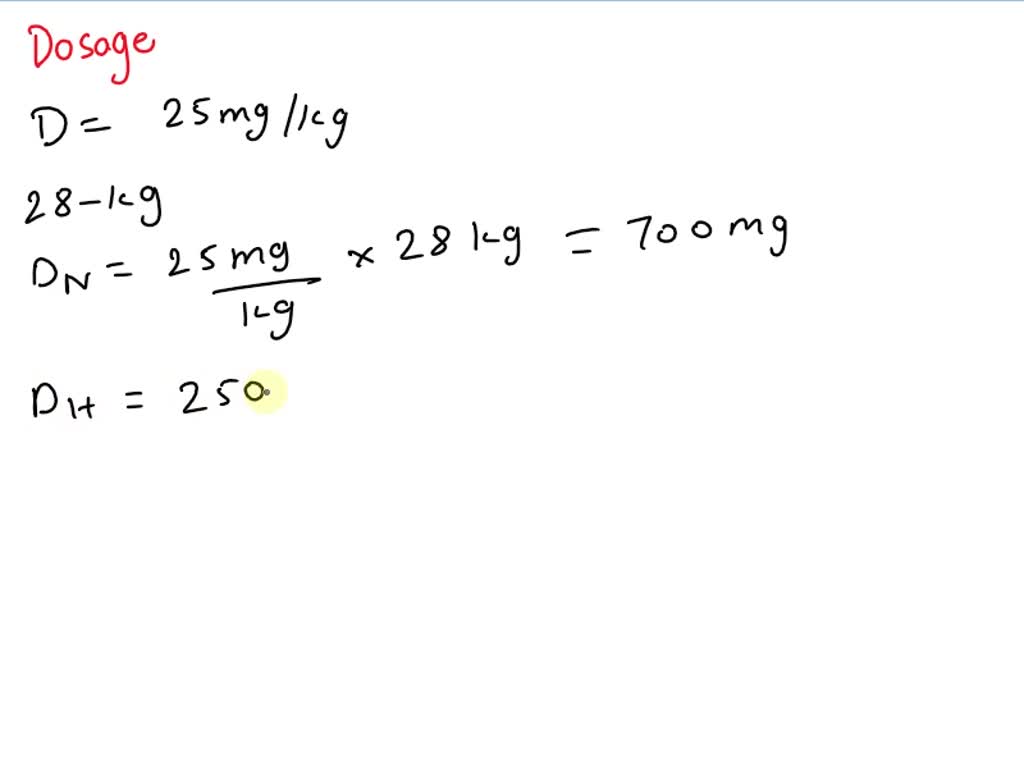 Dosage
D = 25 mg/kg
28-kg
DN = 25 mg/kg × 28 kg = 700 mg
DH = 250